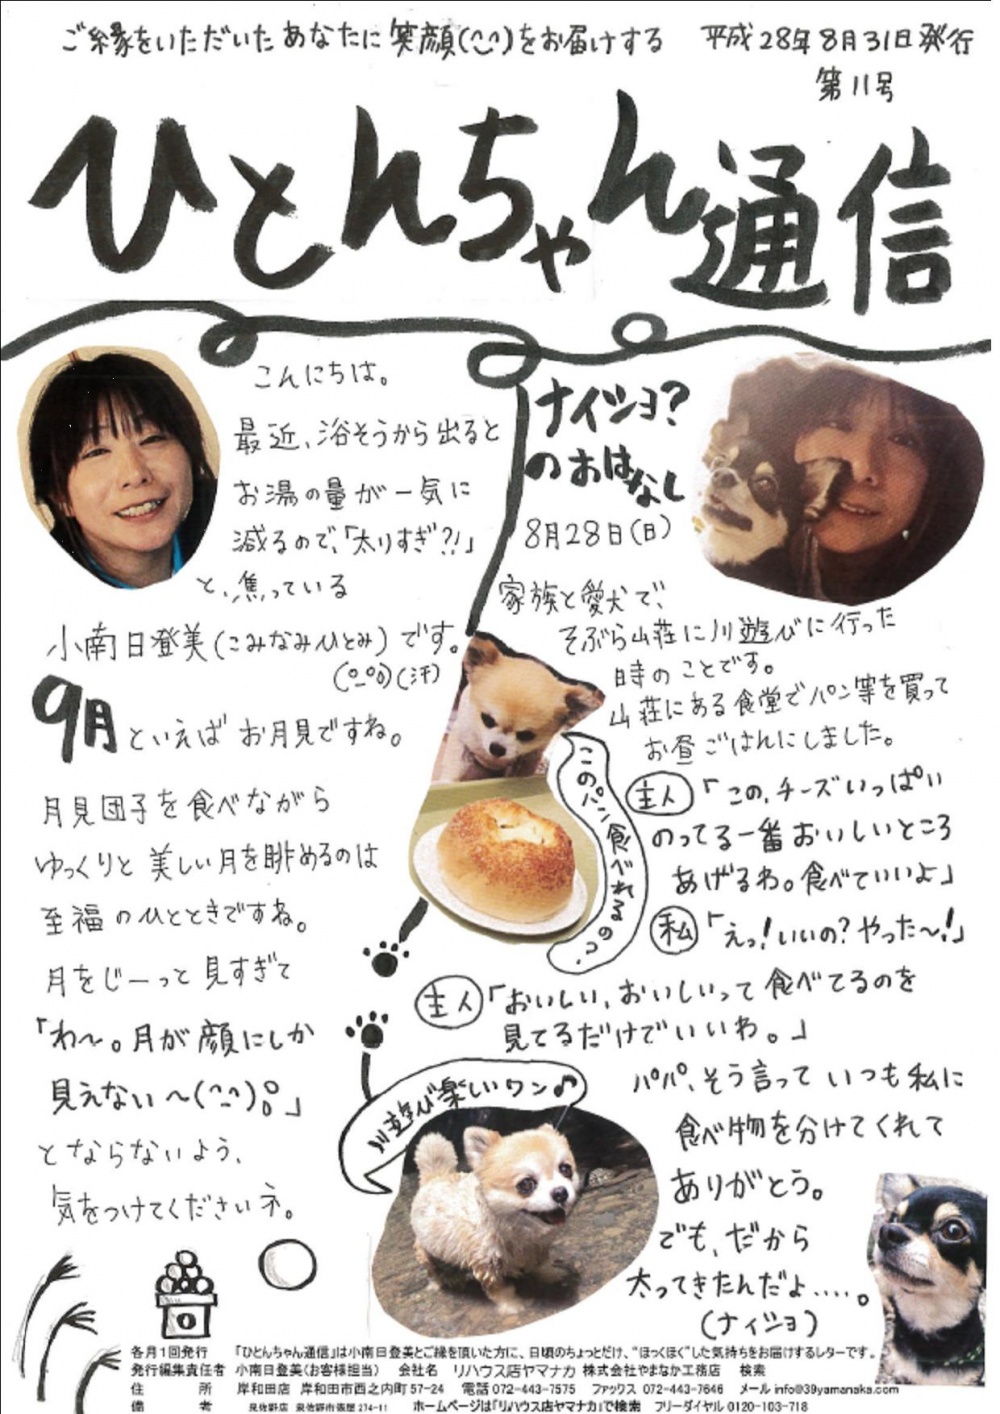 ご縁をいただいたあなたに笑顔(^-^)をお届けする
平成28年8月31日発行
第11号
ひとんちゃん通信
こんにちは。
最近、浴そうから出ると
お湯の量が一気に
減るので、「太りすぎ?!」
と、焦っている
小南日登美(こみなみひとみ)です。
(汗)
9月といえばお月見ですね。
月見団子を食べながら
ゆっくりと美しい月を眺めるのは
至福のひとときですね。
月をじーっと見すぎて
「わ〜。月が顔にしか
見えない〜(^-^)。」
とならないよう、
気をつけてくださいネ。
ナイショ?
のおはなし
8月28日(日)
家族と愛犬で、
そぶら山荘に川遊びに行った
時のことです。
山荘にある食堂でパン等を買って
お昼ごはんにしました。
主人「この、チーズいっぱい
のってる一番おいしいところ
あげるわ。食べていいよ」
私「えっ!いいの?やった〜!」
主人「おいしい、おいしいって食べてるのを
見てるだけでいいわ。」
パパ、そう言っていつも私に
食べ物を分けてくれて
ありがとう。
でも、だから
太ってきたんだよ....。
(ナイショ)
このパン食べれるの?
川遊び楽しいワン♪
各月1回発行 「ひとんちゃん通信」は小南日登美とご縁を頂いた方に、日頃のちょっとだけ、“ほっくほく”した気持ちをお届けするレターです。
発行編集責任者 小南日登美(お客様担当) 会社名 リハウス店ヤマナカ 株式会社やまなか工務店 検索
住所 岸和田店 岸和田市西之内町57-24 電話 072-443-7575 ファックス 072-443-7646 メール info@39yamanaka.com
備考 泉佐野店 ホームページは「リハウス店ヤマナカ」で検索 フリーダイヤル 0120-103-718